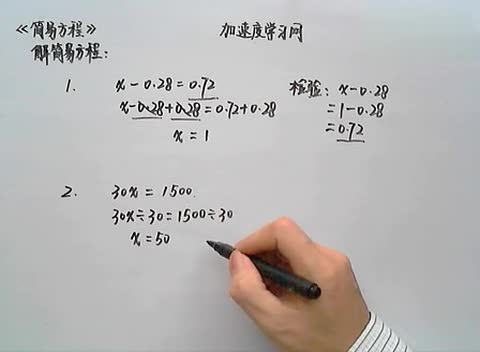 《简易方程》 加速度学习网
解简易方程：
1. x-0.28=0.72
x-0.28+0.28=0.72+0.28
x=1
检验：x-0.28
=1-0.28
=0.72
2. 30x=1500.
30x÷30=1500÷30
x=50